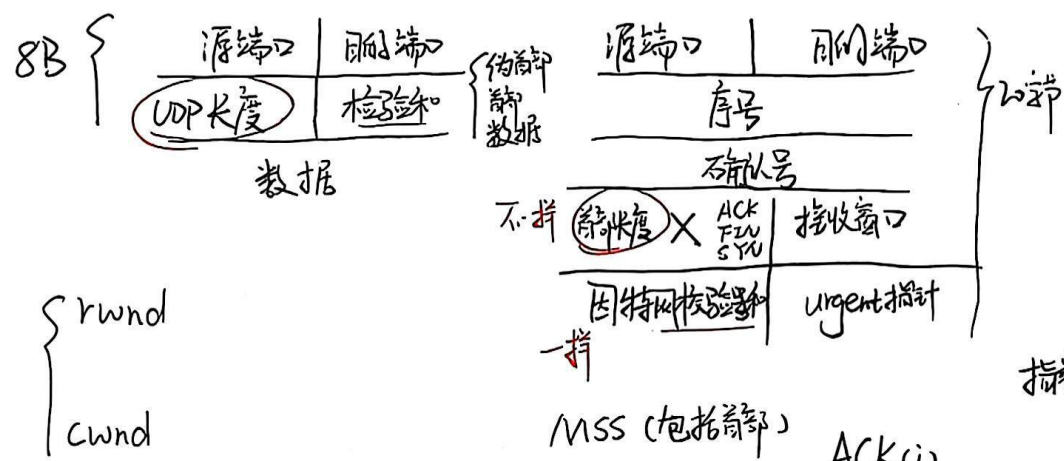 8B
源端口 目的端口
UDP长度 检验和
伪首部
首部
数据
数据
源端口 目的端口
序号
确认号
不一样 首部长度 × ACK
FIN
SYN
接收窗口
因特网检验和 urgent指针
一样
20字节
rwnd
cwnd
MSS (包括首部)